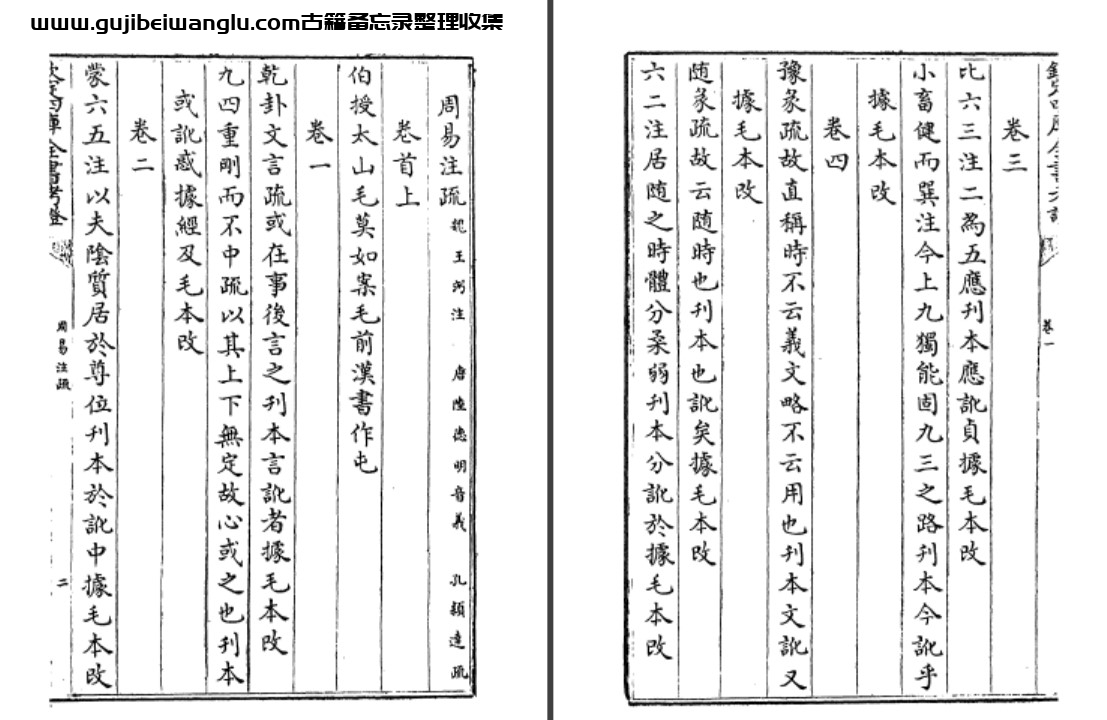 www.gujibeiwanglu.com古籍备忘录整理收集
周易注疏 魏王弼注 唐陸德明音義 孔穎達疏
卷首上
伯授太山毛莫如案毛前漢書作屯
卷一
乾卦文言疏或在事後言之刊本言訛者據毛本改
九四重剛而不中疏以其上下無定故心或之也刊本
或訛惑據經及毛本改
卷二
蒙六五注以夫陰質居於尊位刊本於訛中據毛本改
全書考證 周易注疏 二
卷一
卷三
比六三注二為五應刊本應訛貞據毛本改
小畜健而巽注今上九獨能固九三之路刊本今訛乎
據毛本改
卷四
豫彖疏故直稱時不云義文略不云用也刊本文訛又
據毛本改
随彖疏故云随時也刊本也訛矣據毛本改
六二注居随之時體分柔弱刊本分訛於據毛本改